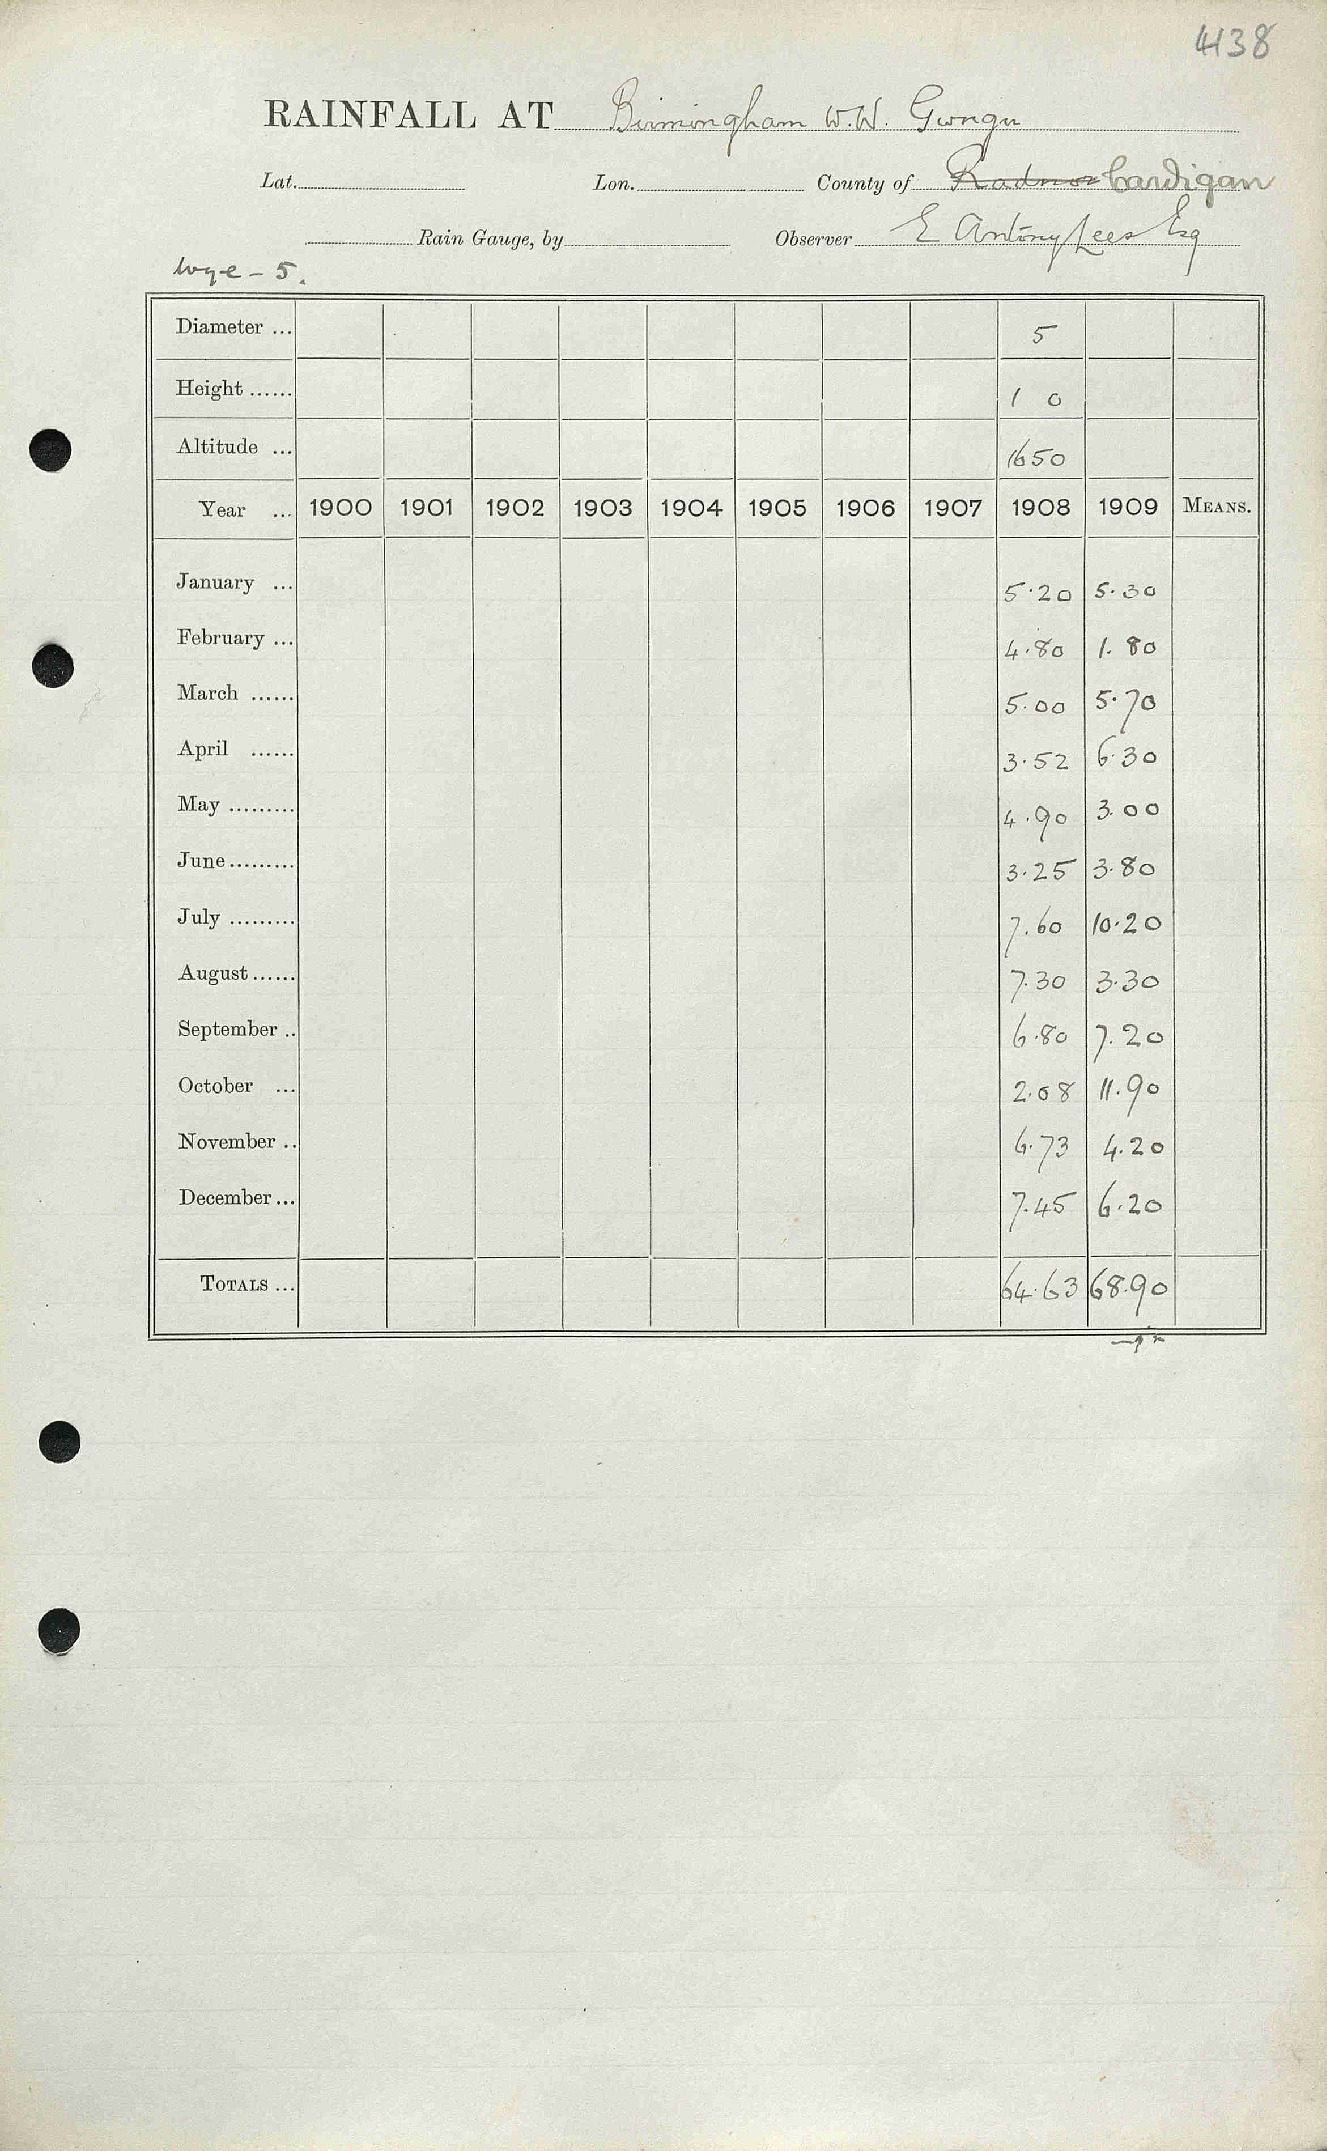 4138
RAINFALL AT Birmingham W.W. Gwngu
Lat. Lon. County of Radnor Cardigan
Rain Gauge, by Observer E Antony Lees Esq
Wye - 5.
Diameter ... 5
Height ...... 1 0
Altitude ... 1650
Year ... 1900 1901 1902 1903 1904 1905 1906 1907 1908 1909 MEANS.
January ... 5.20 5.30
February ... 4.80 1.80
March ...... 5.00 5.70
April ...... 3.52 6.30
May ......... 4.90 3.00
June ......... 3.25 3.80
July ......... 7.60 10.20
August ...... 7.30 3.30
September .. 6.80 7.20
October ... 2.08 11.90
November .. 6.73 4.20
December ... 7.45 6.20
TOTALS ... 64.63 68.90